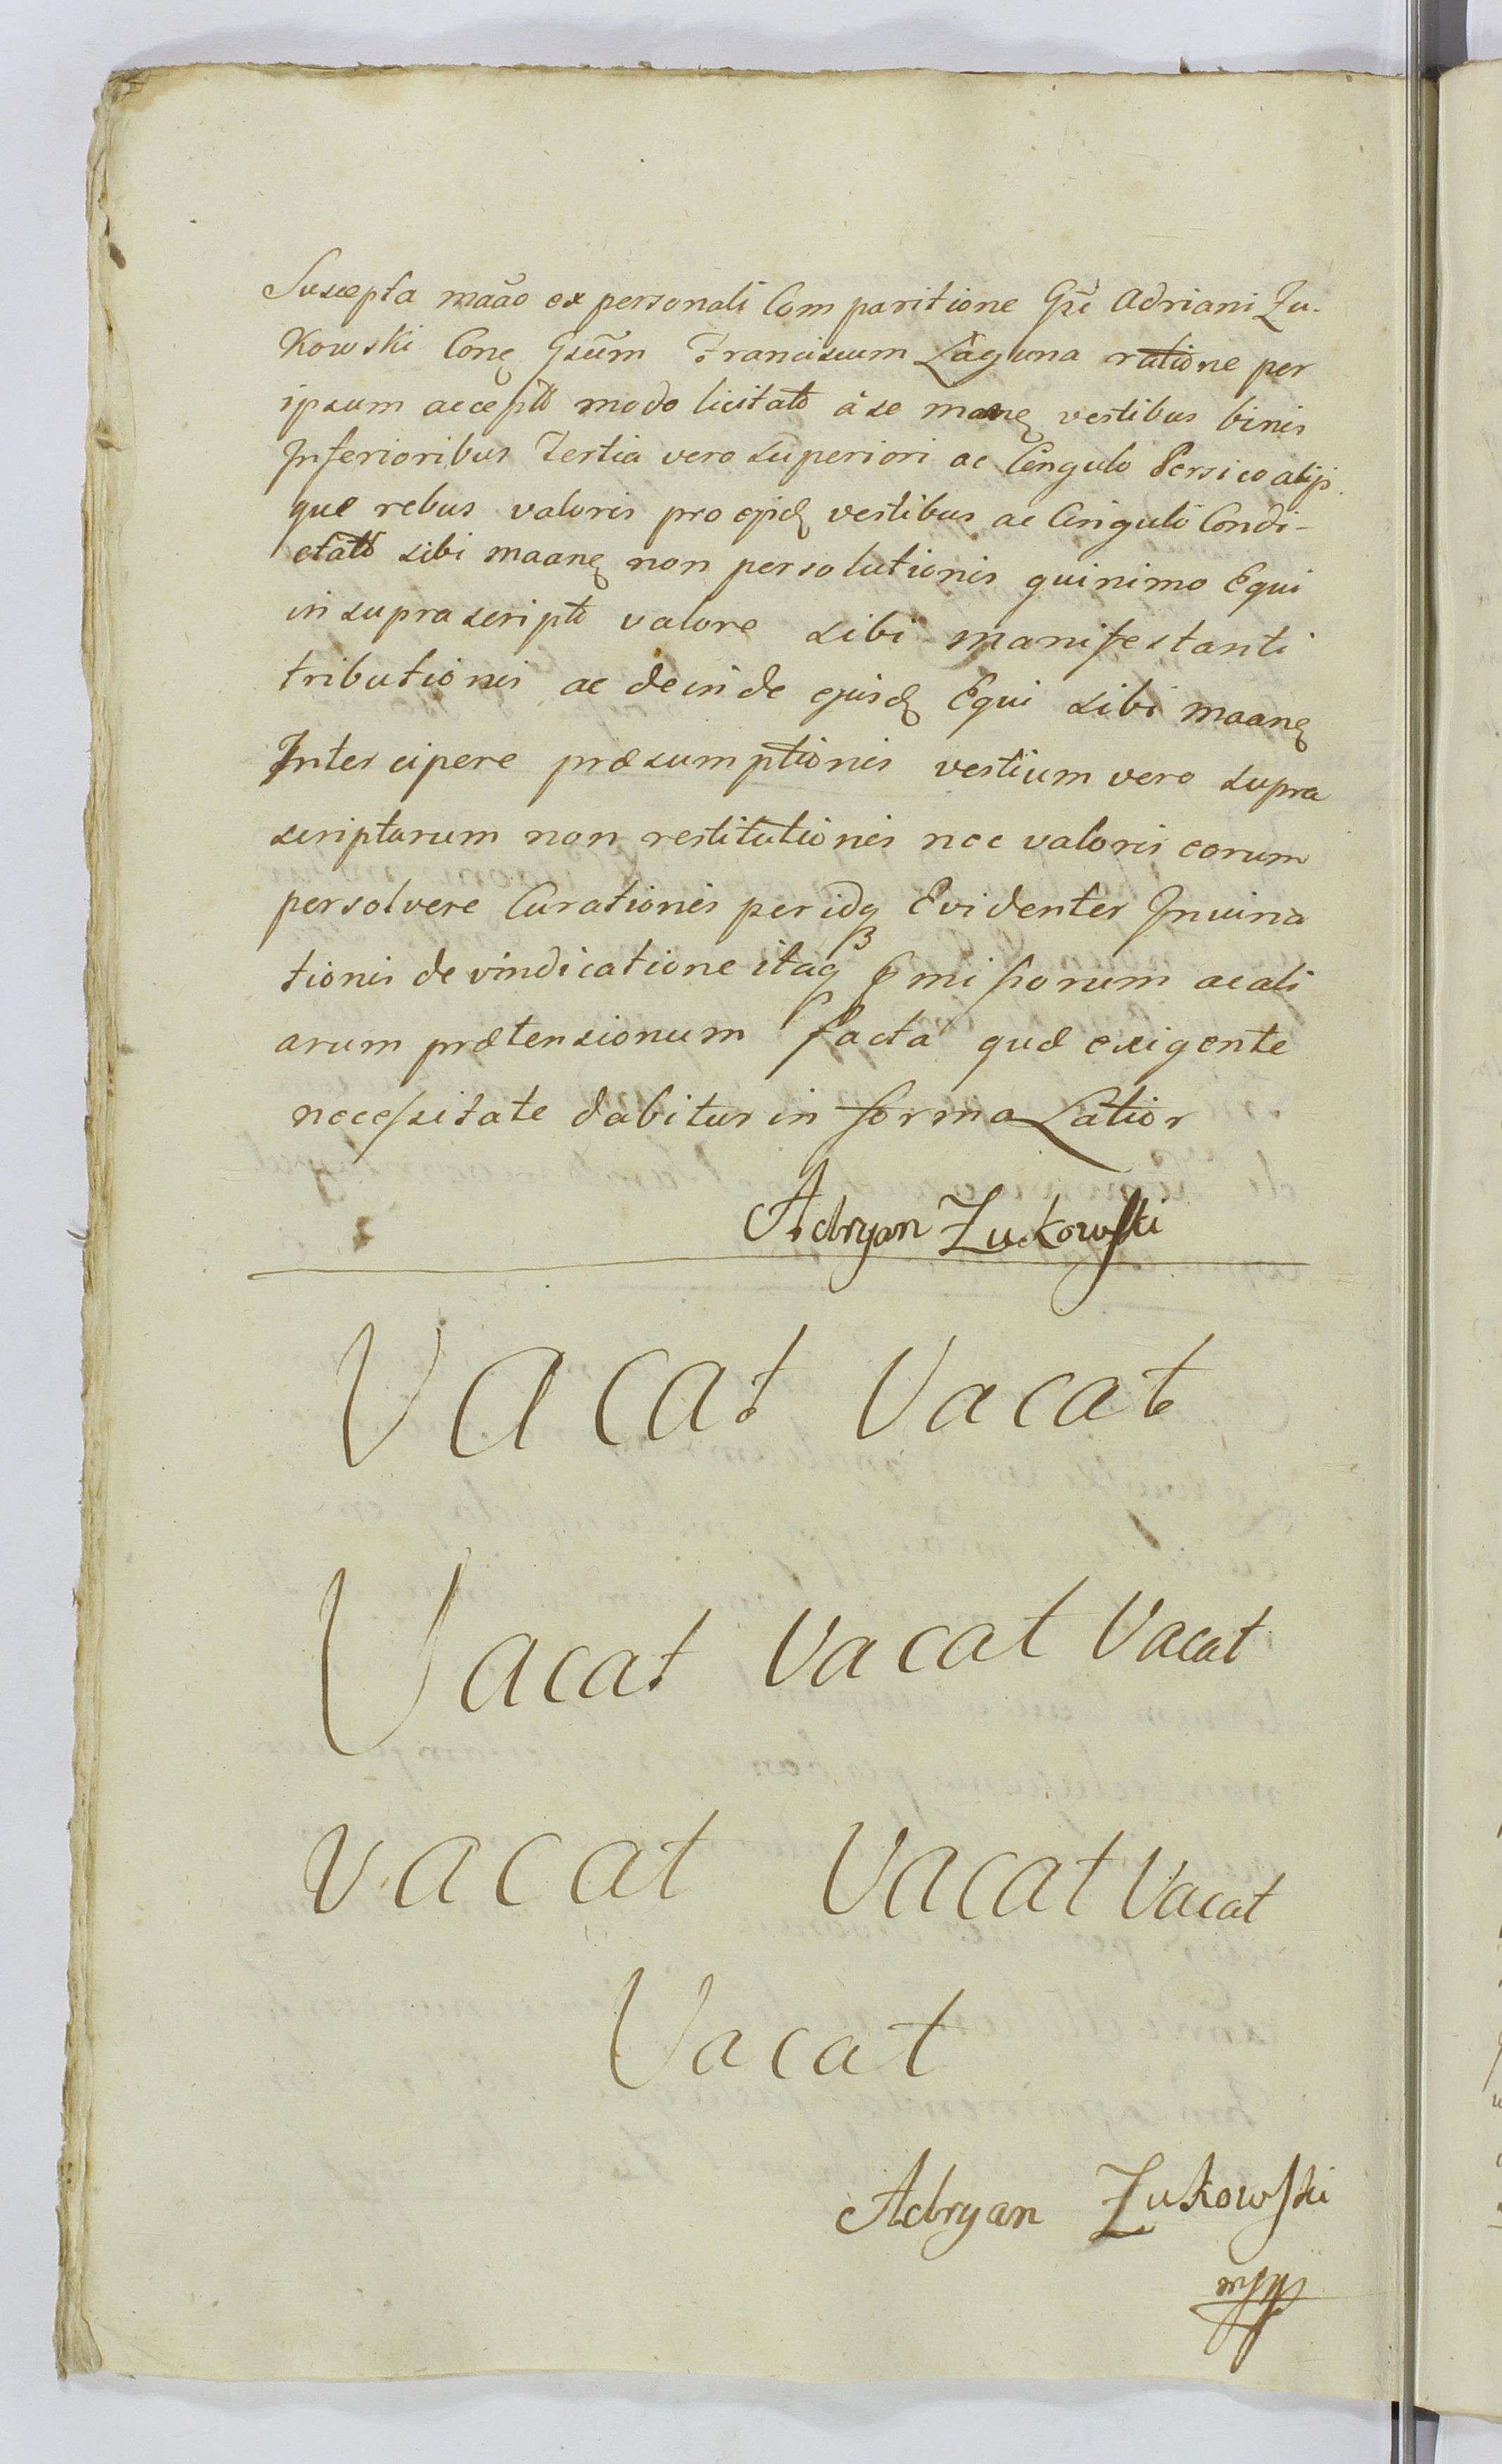 Suscepta maāo ex personali Comparitione Gsi Adriani Zu-
Kowski Conq Gsūm Franciscum Laguna ratione per
ipsum accepto modo licitato à se manq vestibus binis
Inferioribus Tertia vero superiori ac Cengulo Persico alijs
que rebus valoris pro ejusdq vestibus ac Cinguli Condi-
ctato sibi maanq non persolutionis quinimo Equi
in supra scripto valore sibi manifestanti
tributionis ac deinde ejusdq Equi sibi maanq
Intercipere præsumptionis vestium vero supra
scriptarum non restitutionis nec valoris eorum
persolvere Curationis per idq Evidenter Inuina
tionis de vindicatione itaq præmissorum ac ali
arum prætensionum facta quæ exigente
necessitate dabitur in forma Latior
Adryan Zukowski
Vacat Vacat
Vacat Vacat Vacat
Vacat Vacat Vacat
Vacat
Adryan Zukowski
mpp